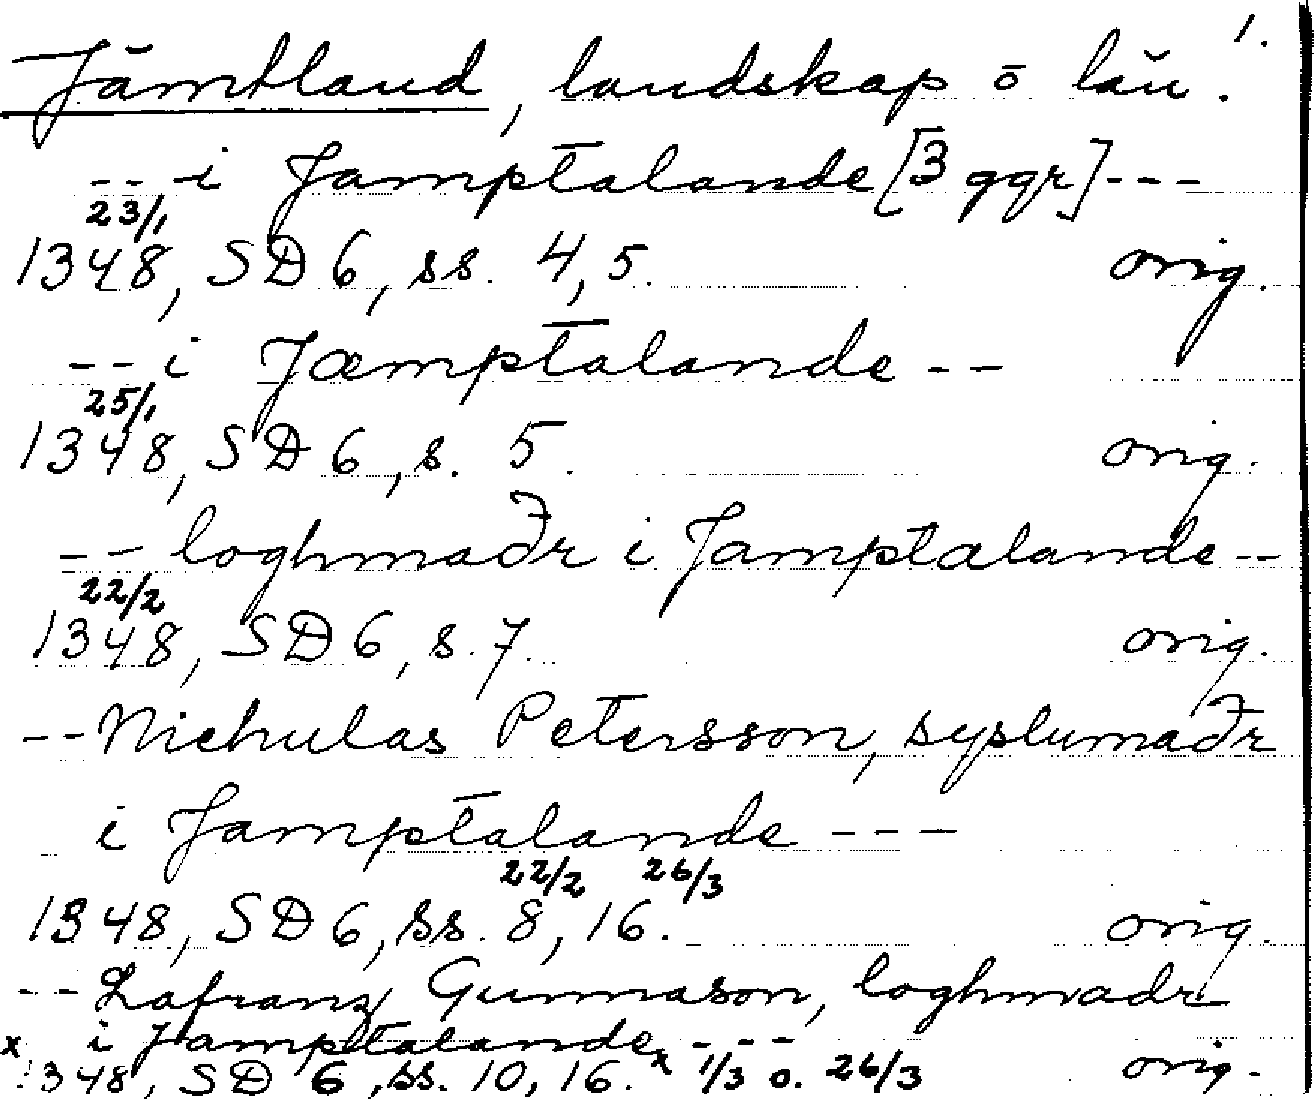 1.
Jämtland, landskap o län.
--- i Jamptalande [3 ggr] ---
23/1
1348, SD 6, ss. 4, 5. orig.
-- i Jæmptalande --
25/1
1348, SD 6, s. 5. orig.
-- loghmaðr i Jamptalande --
22/2
1348, SD 6, s. 7. orig.
-- Nichulas Petersson, syslumaðr
i Jamptalande ---
22/2 26/3
1348, SD 6, ss. 8, 16. orig.
-- Lafranz Gunnason, loghmadr
x i Jamptalande ---
1348, SD 6, ss. 10, 16. x 1/3 o. 26/3 orig.